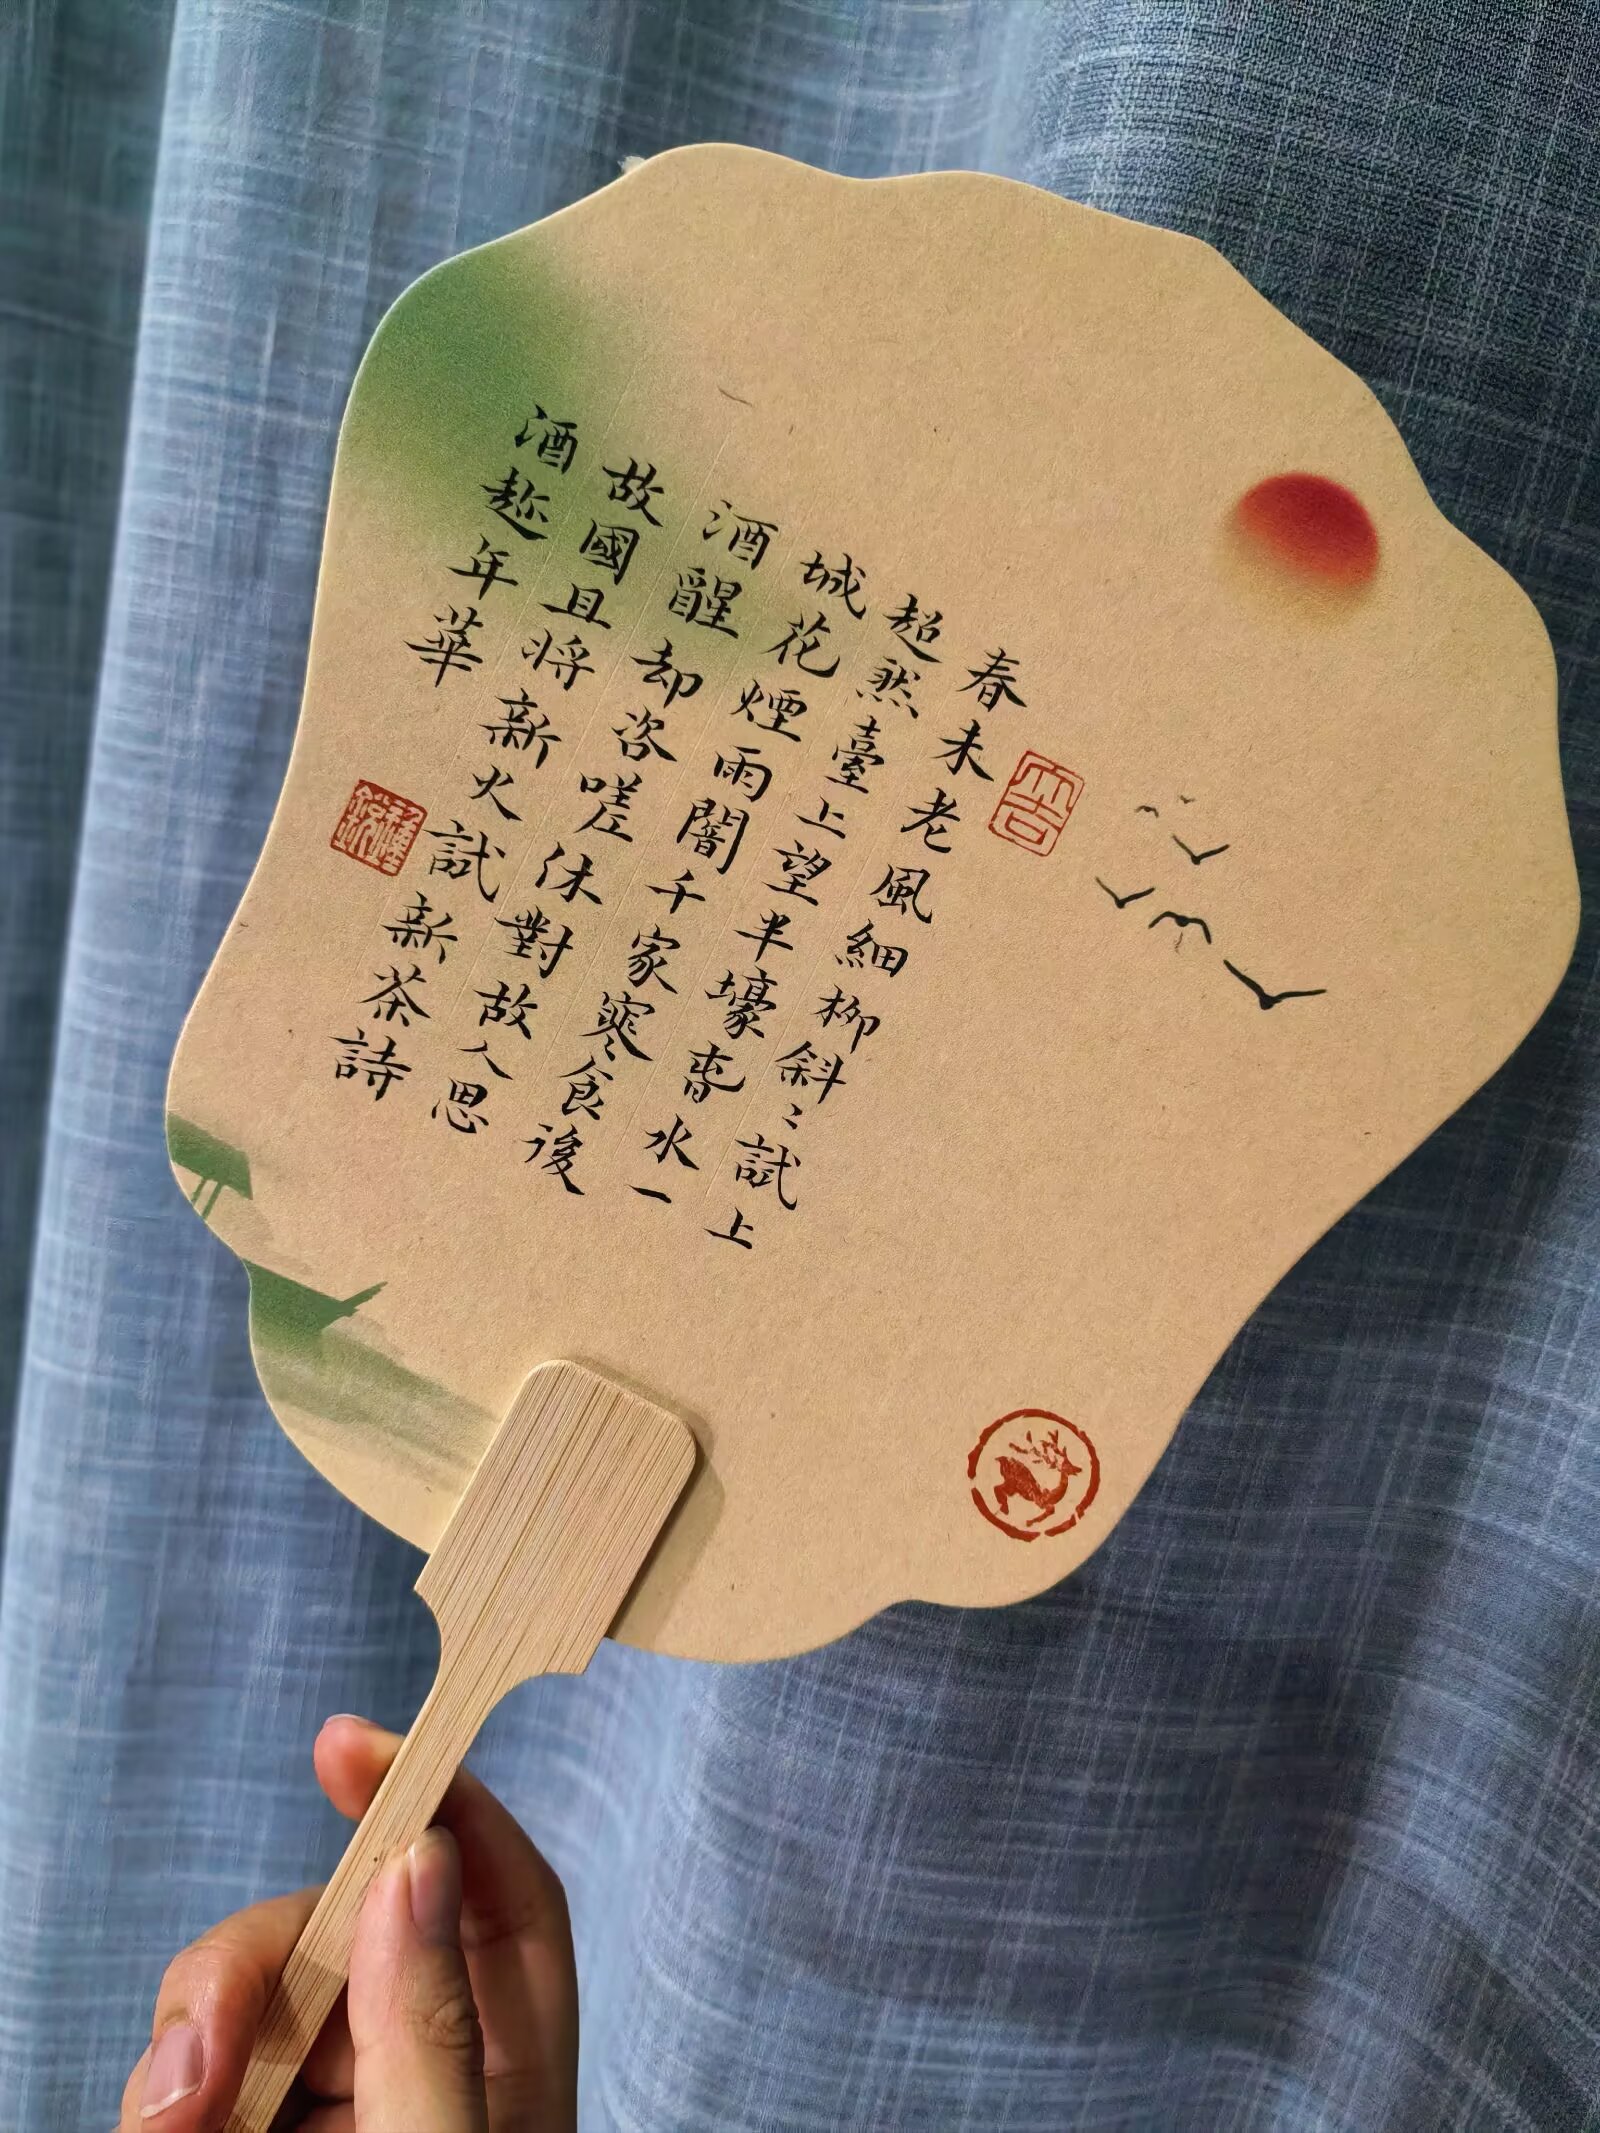 春未老風細柳斜〻試上
超然臺上望半壕春水一
城花煙雨闇千家寒食後
酒醒却咨嗟休對故人思
故國且將新火試新茶詩
酒趂年華